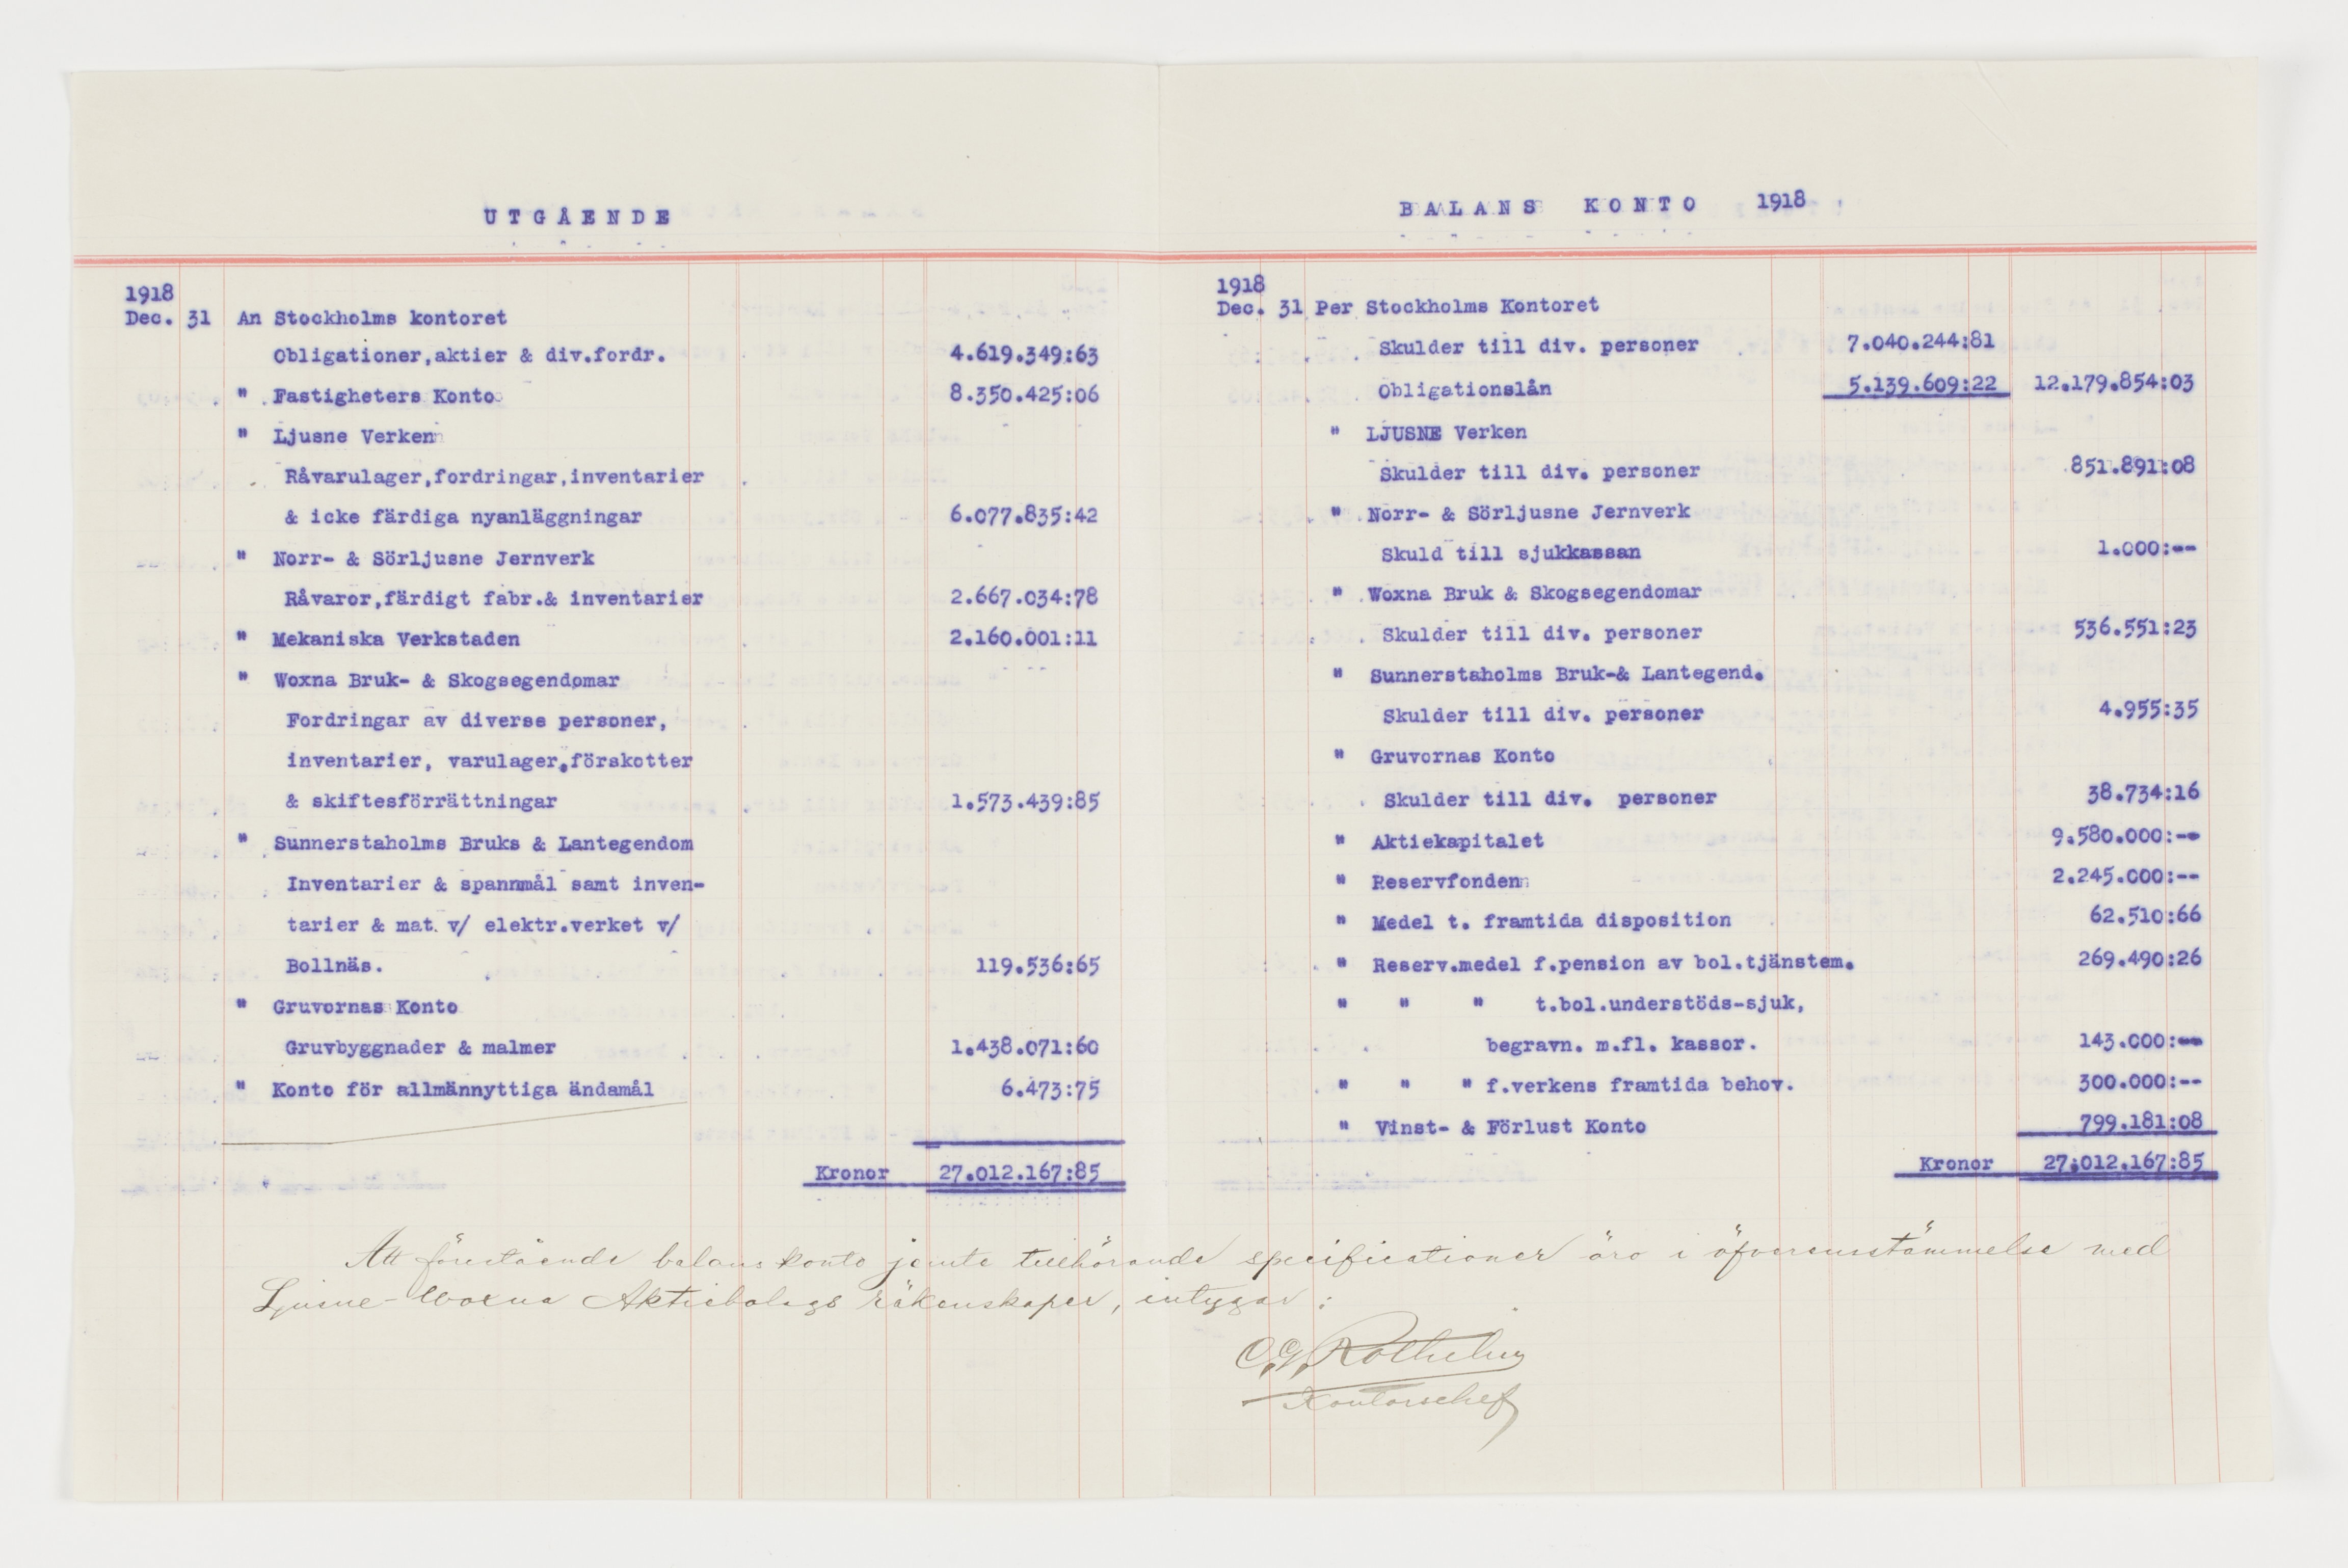 UTGÅENDE
1918
Dec. 31 An Stockholms kontoret
Obligationer,aktier & div.fordr. 4.619.349:63
" Fastigheters Konto 8.350.425:06
" Ljusne Verken
Råvarulager,fordringar,inventarier
& icke färdiga nyanläggningar 6.077.835:42
" Norr- & Sörljusne Jernverk
Råvaror,färdigt fabr.& inventarier 2.667.034:78
" Mekaniska Verkstaden 2.160.001:11
" Woxna Bruk- & Skogsegendomar
Fordringar av diverse personer,
inventarier, varulager,förskotter
& skiftesförrättningar 1.573.439:85
" Sunnerstaholms Bruks & Lantegendom
Inventarier & spannmål samt inven-
tarier & mat. v/ elektr.verket v/
Bollnäs. 119.536:65
" Gruvornas Konto
Gruvbyggnader & malmer 1.438.071:60
" Konto för allmännyttiga ändamål 6.473:75
Kronor 27.012.167:85
BALANS KONTO 1918
1918
Dec. 31 Per Stockholms Kontoret
Skulder till div. personer 7.040.244:81
Obligationslån 5.139.609:22 12.179.854:03
" LJUSNE Verken
Skulder till div. personer 851.891:08
" Norr- & Sörljusne Jernverk
Skuld till sjukkassan 1.000:--
" Woxna Bruk & Skogsegendomar
Skulder till div. personer 536.551:23
" Sunnerstaholms Bruk-& Lantegend.
Skulder till div. personer 4.955:35
" Gruvornas Konto
Skulder till div. personer 38.734:16
" Aktiekapitalet 9.580.000:--
" Reservfonden 2.245.000:--
" Medel t. framtida disposition 62.510:66
" Reserv.medel f.pension av bol.tjänstem. 269.490:26
" " " t.bol.understöds-sjuk,
begravn. m.fl. kassor. 143.000:--
" " " f.verkens framtida behov. 300.000:--
" Vinst- & Förlust Konto 799.181:08
Kronor 27.012.167:85
Att förestående balanskonto jemte tillhörande specificationer äro i öfverensstämmelse med
Ljusne-Woxna Aktiebolags räkenskaper, intygar:
C.G. Rothelius
Kontorschef